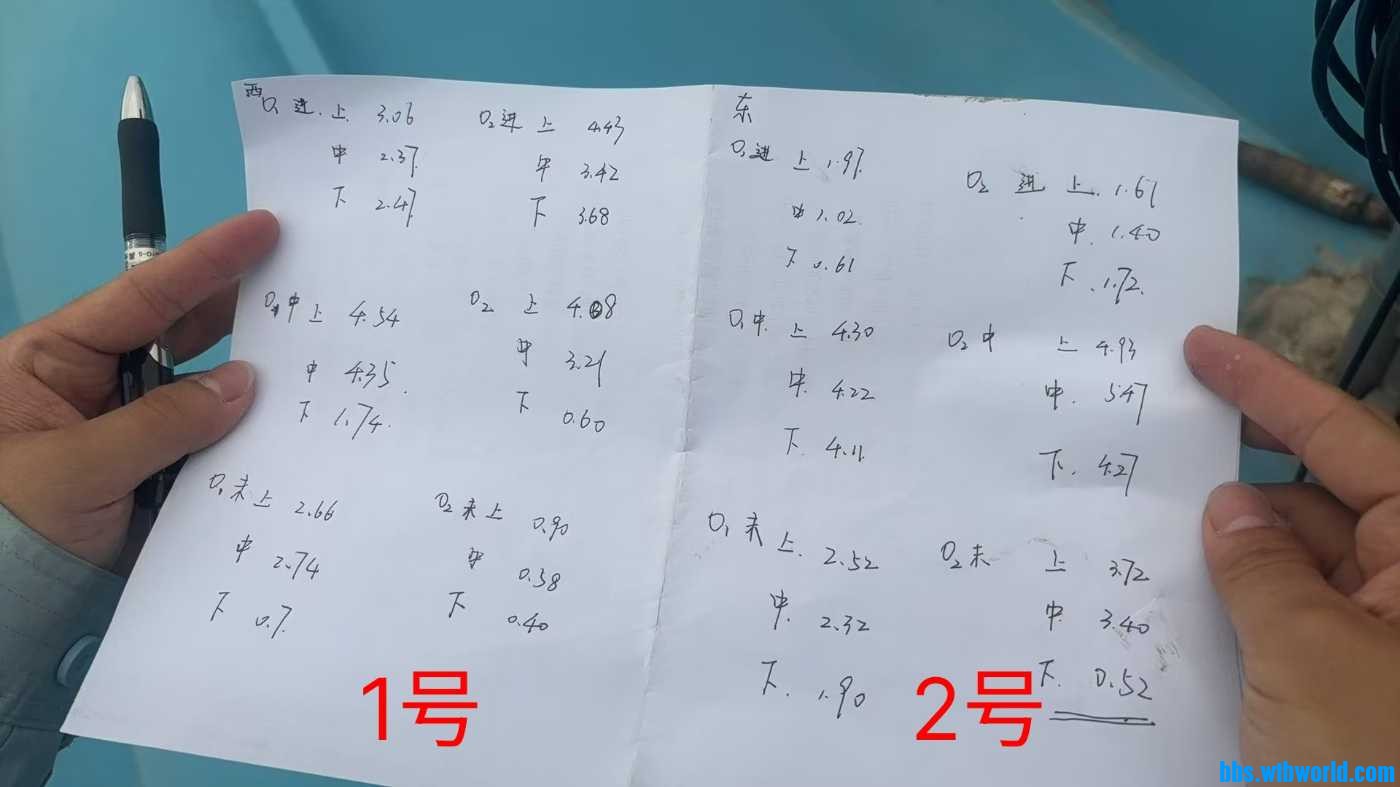 西
O₁ 进. 上 3.06
中 2.37
下 2.47
O₂ 进 上 4.43
中 3.42
下 3.68
O₁ 中 上 4.54
中 4.35
下 1.74
O₂ 上 4.08
中 3.21
下 0.60
O₁ 末 上 2.66
中 2.74
下 0.7
O₂ 末 上 0.90
中 0.38
下 0.40
1号
东
O₁ 进 上 1.97
中 1.02
下 0.61
O₂ 进 上. 1.61
中. 1.40
下. 1.72
O₁ 中. 上 4.30
中. 4.22
下. 4.11
O₂ 中 上 4.93
中. 5.47
下. 4.27
O₁ 末 上. 2.52
中. 2.32
下. 1.90
O₂ 末 上 3.72
中 3.40
下. 0.52
2号
bbs.wtbworld.com